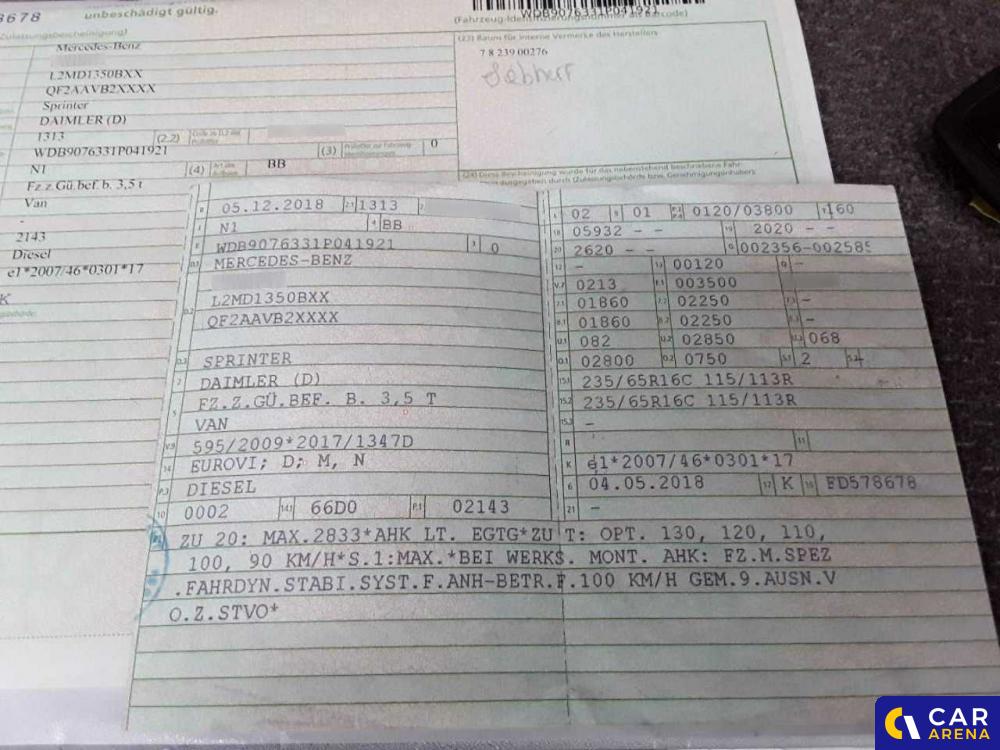 8678
unbeschädigt gültig.
WDB9076331P041921
(Zulassungsbescheinigung)
Mercedes-Benz
L2MD1350BXX
QF2AAVB2XXXX
Sprinter
DAIMLER (D)
1313
(2.2)
WDB9076331P041921
(3)
0
N1
(4)
BB
Fz.z.Gü.bef.b. 3,5 t
Van
-
2143
Diesel
e1*2007/46*0301*17
K
(23) Raum für interne Vermerke des Herstellers
7 8 239 00276
05.12.2018 2.1 1313 2
J N1 4 BB
E WDB9076331P041921 3 0
D.1 MERCEDES-BENZ
L2MD1350BXX
D.2 QF2AAVB2XXXX
D.3 SPRINTER
2 DAIMLER (D)
5 FZ.Z.GÜ.BEF. B. 3,5 T
VAN
V.9 595/2009*2017/1347D
14 EUROVI; D; M, N
P.3 DIESEL
10 0002 14.1 66D0 P.1 02143
L 02 9 01 P.2 P.4 0120/03800 T 160
18 05932 - - 19 2020 - -
20 2620 - - G 002356-002585
12 - 13 00120 Q -
V.7 0213 F.1 003500
7.1 01860 7.2 02250 7.3 -
8.1 01860 8.2 02250 8.3 -
U.1 082 U.2 02850 U.3 068
O.1 02800 O.2 0750 S.1 2 S.2 -
15.1 235/65R16C 115/113R
15.2 235/65R16C 115/113R
15.3 -
R 11
K e1*2007/46*0301*17
6 04.05.2018 17 K 16 FD578678
21 -
ZU 20: MAX.2833*AHK LT. EGTG*ZU T: OPT. 130, 120, 110,
100, 90 KM/H*S.1:MAX.*BEI WERKS. MONT. AHK: FZ.M.SPEZ
.FAHRDYN.STABI.SYST.F.ANH-BETR.F.100 KM/H GEM.9.AUSN.V
O.Z.STVO*
CAR
ARENA